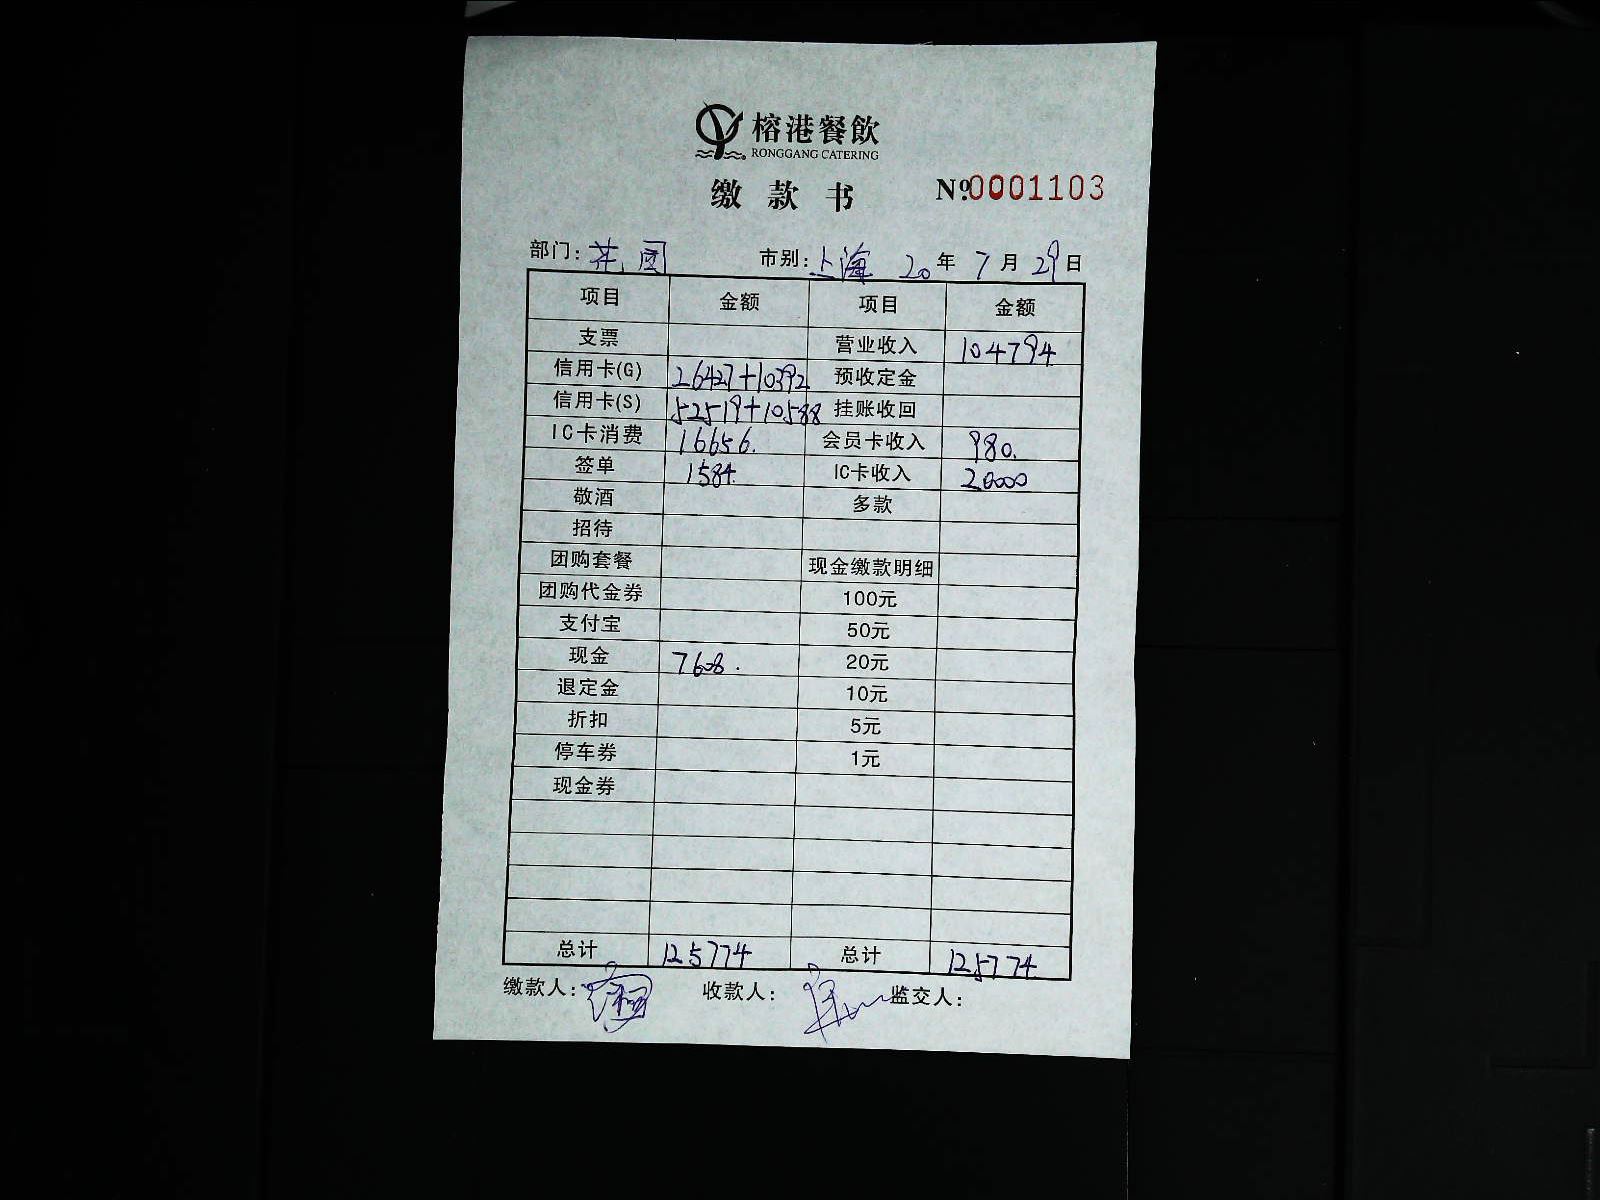 榕港餐飲
RONGGANG CATERING
缴款书 №0001103
部门: 花园 市别: 上海 20年7月29日
项目 金额 项目 金额
支票 营业收入 104794
信用卡(G) 26427+10392 预收定金
信用卡(S) 52519+10588 挂账收回
IC卡消费 16656. 会员卡收入 980.
签单 1584. IC卡收入 20000
敬酒 多款
招待
团购套餐 现金缴款明细
团购代金券 100元
支付宝 50元
现金 7608. 20元
退定金 10元
折扣 5元
停车券 1元
现金券
总计 125774 总计 125774
缴款人: 收款人: 监交人: